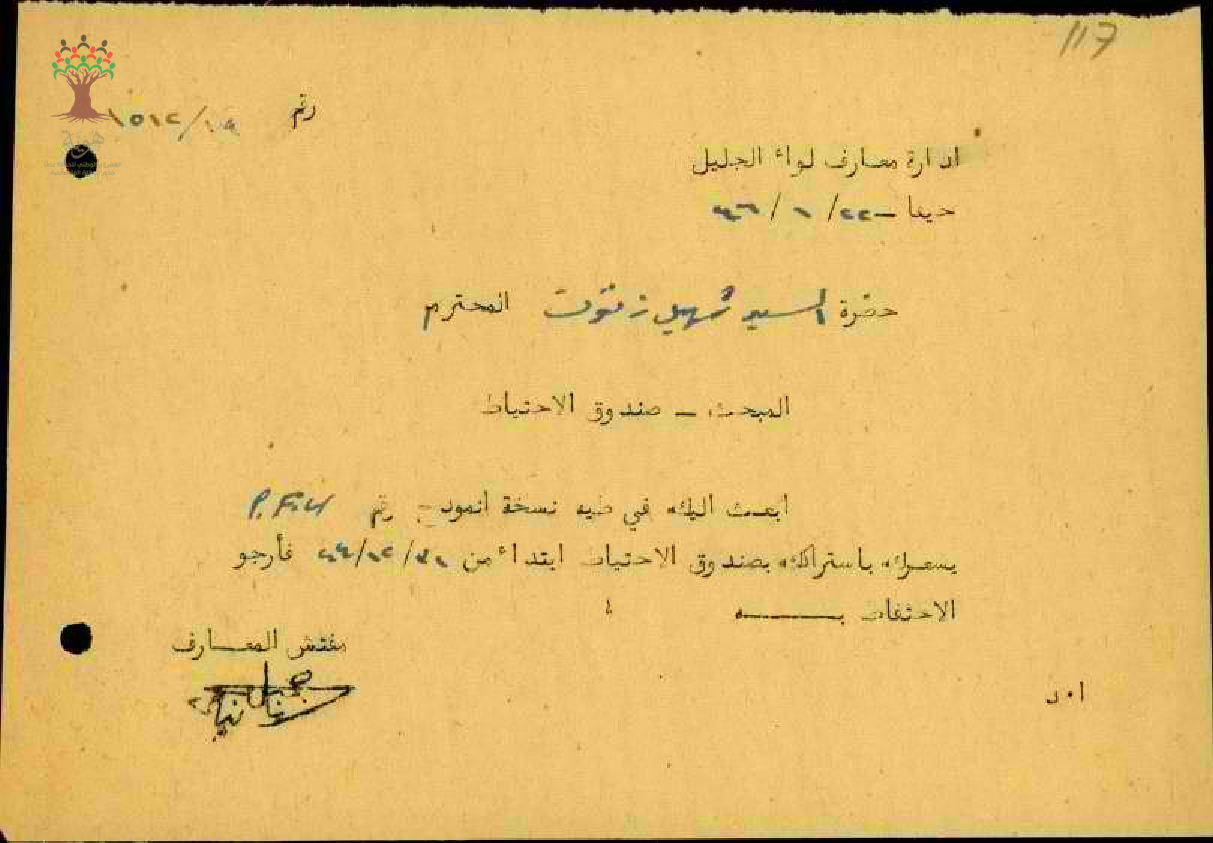 117
رقم ١٥١٢/
ادارة معارف لواء الجليل
حيفا - ٢٢/ ١ /٤٦
حضرة السيد سهيل زعموت المحترم
المبحث - صندوق الاحتياط
ابعث اليك في طيه نسخة انموذج رقم P.F.4
يشعرك باشتراكك بصندوق الاحتياط ابتداء من ٣١/١٢/٤٤ فأرجو
الاحتفاظ بـــــــه
مفتش المعارف
ا٠د